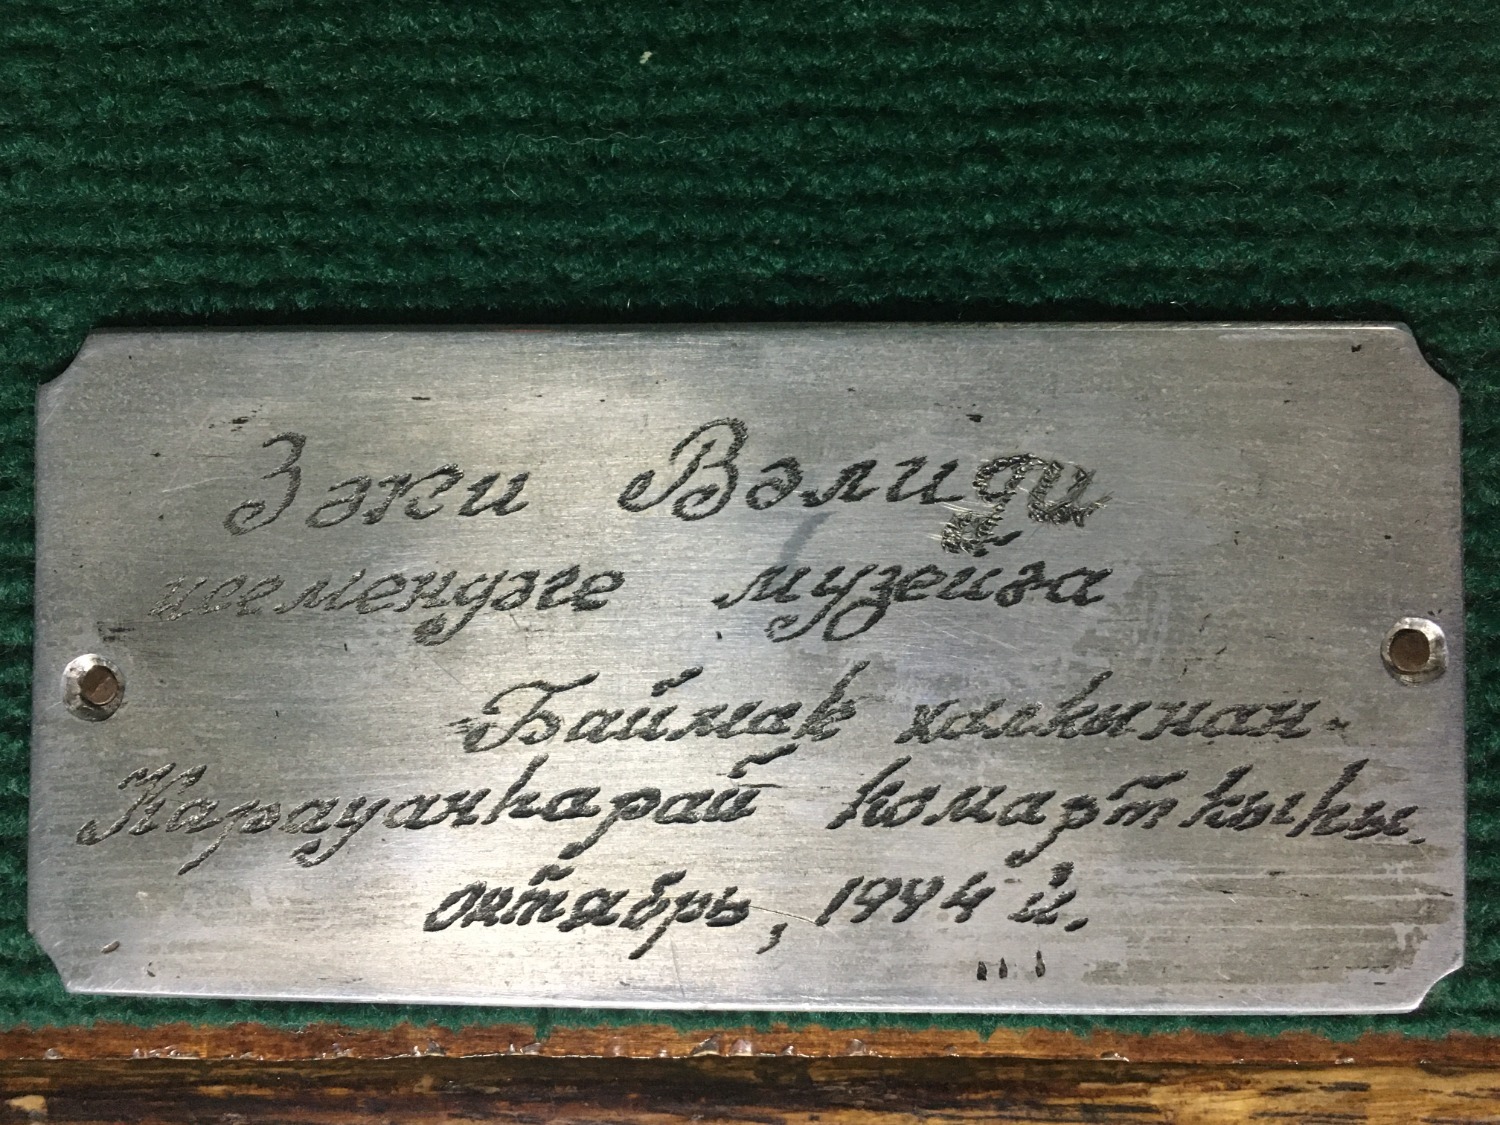 Зәки Вәлиди
исемендәге музейға
Баймаҡ халҡынан-
Карауанһарай ҡомартҡыһы.
октябрь, 1994 й.